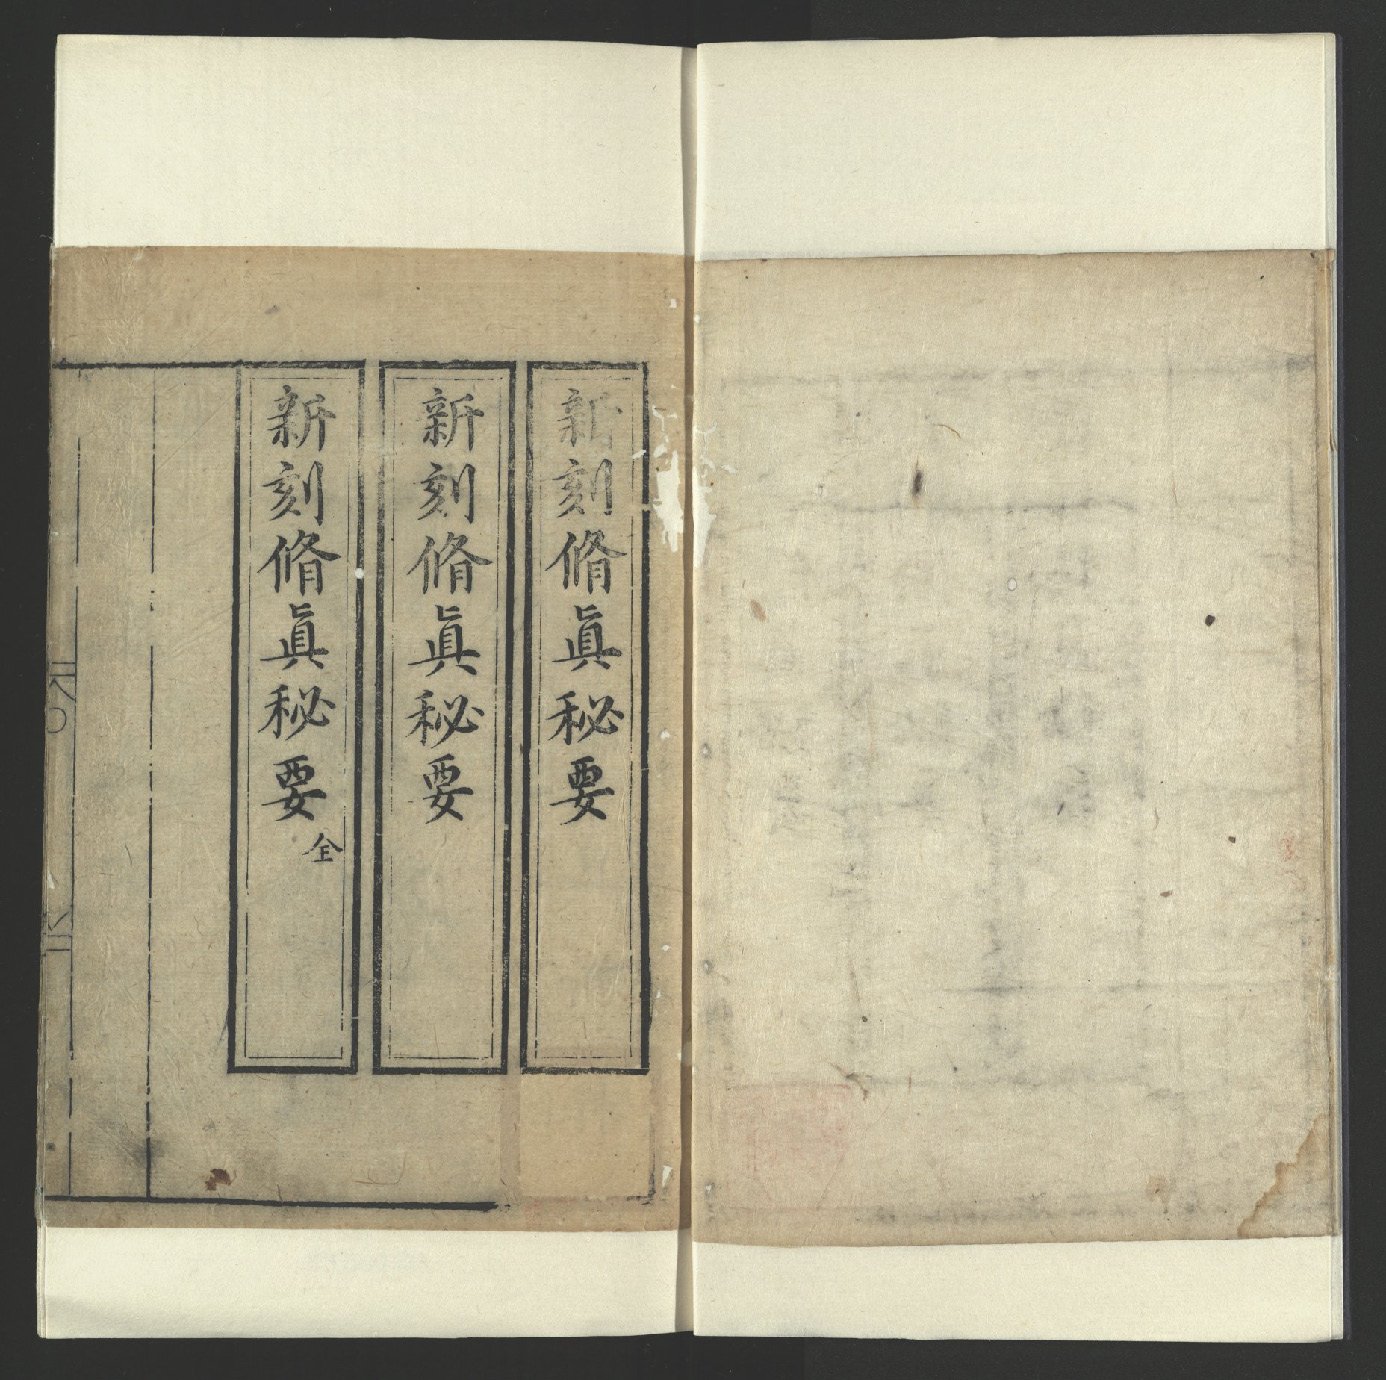 新刻脩眞秘要
新刻脩眞秘要
新刻脩眞秘要全